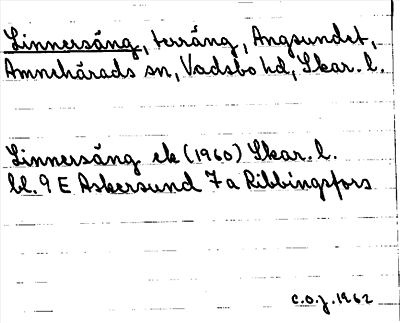 Linnersäng, terräng, Angsundet,
Amnehärads sn, Vadsbo hd, Skar. l.
Linnersäng ek (1960) Skar. l.
bl. 9 E Askersund 7 a Ribbingsfors
c.o.j. 1962